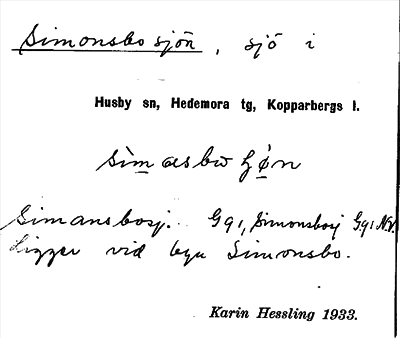 Simonsbosjön, sjö i
Husby sn, Hedemora tg, Kopparbergs l.
Simansbosj. Gq1, Simonsbosj Gq1 N.V.
Ligger vid byn Simonsbo.
Karin Hessling 1933.